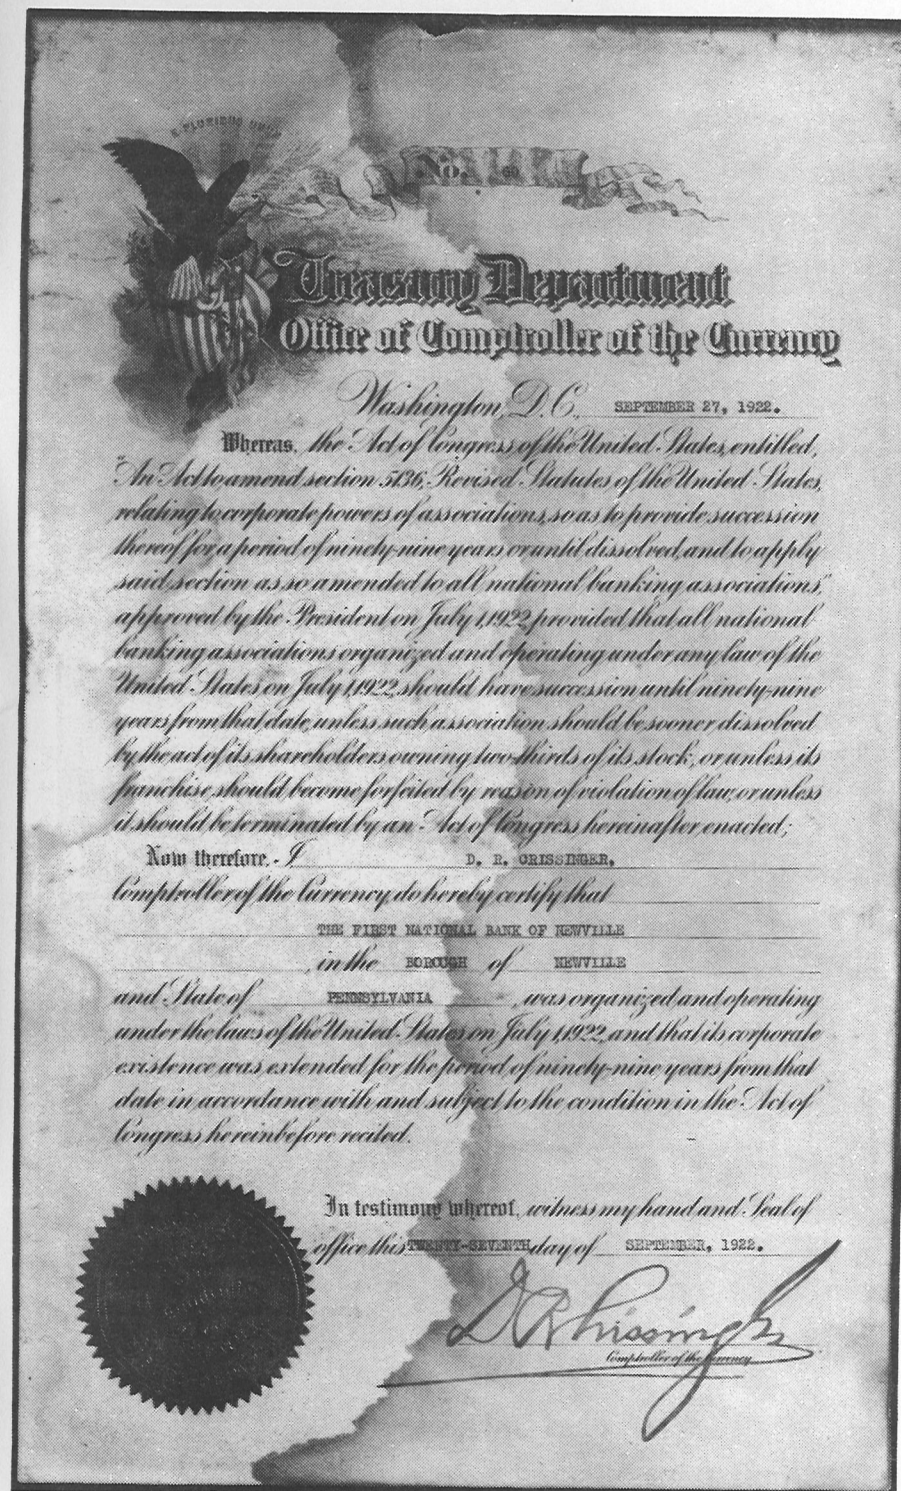 E PLURIBUS UNUM
No. 60
Treasury Department
Office of Comptroller of the Currency
Washington, D.C., SEPTEMBER 27, 1922.
Whereas, the Act of Congress of the United States, entitled,
"An Act to amend section 5136, Revised Statutes of the United States,
relating to corporate powers of associations, so as to provide succession
thereof for a period of ninety-nine years or until dissolved, and to apply
said section as so amended to all national banking associations,"
approved by the President on July 1, 1922, provided that all national
banking associations organized and operating under any law of the
United States on July 1, 1922, should have succession until ninety-nine
years from that date, unless such association should be sooner dissolved
by the act of its shareholders owning two-thirds of its stock, or unless its
franchise should become forfeited by reason of violation of law, or unless
it should be terminated by an Act of Congress hereinafter enacted;
Now therefore, I D. R. CRISSINGER,
Comptroller of the Currency, do hereby certify that
THE FIRST NATIONAL BANK OF NEWVILLE
, in the BOROUGH of NEWVILLE
and State of PENNSYLVANIA , was organized and operating
under the laws of the United States on July 1, 1922, and that its corporate
existence was extended for the period of ninety-nine years from that
date in accordance with and subject to the condition in the Act of
Congress hereinbefore recited.
In testimony whereof, witness my hand and Seal of
office this TWENTY-SEVENTH day of SEPTEMBER, 1922.
D R Crissinger
Comptroller of the Currency